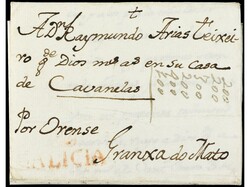 A Dn Raymundo Arias Teixei
ro gde Dios ms as en su Casa
de Cavanelas
Por Orense
Granxa do Mato
GALICIA